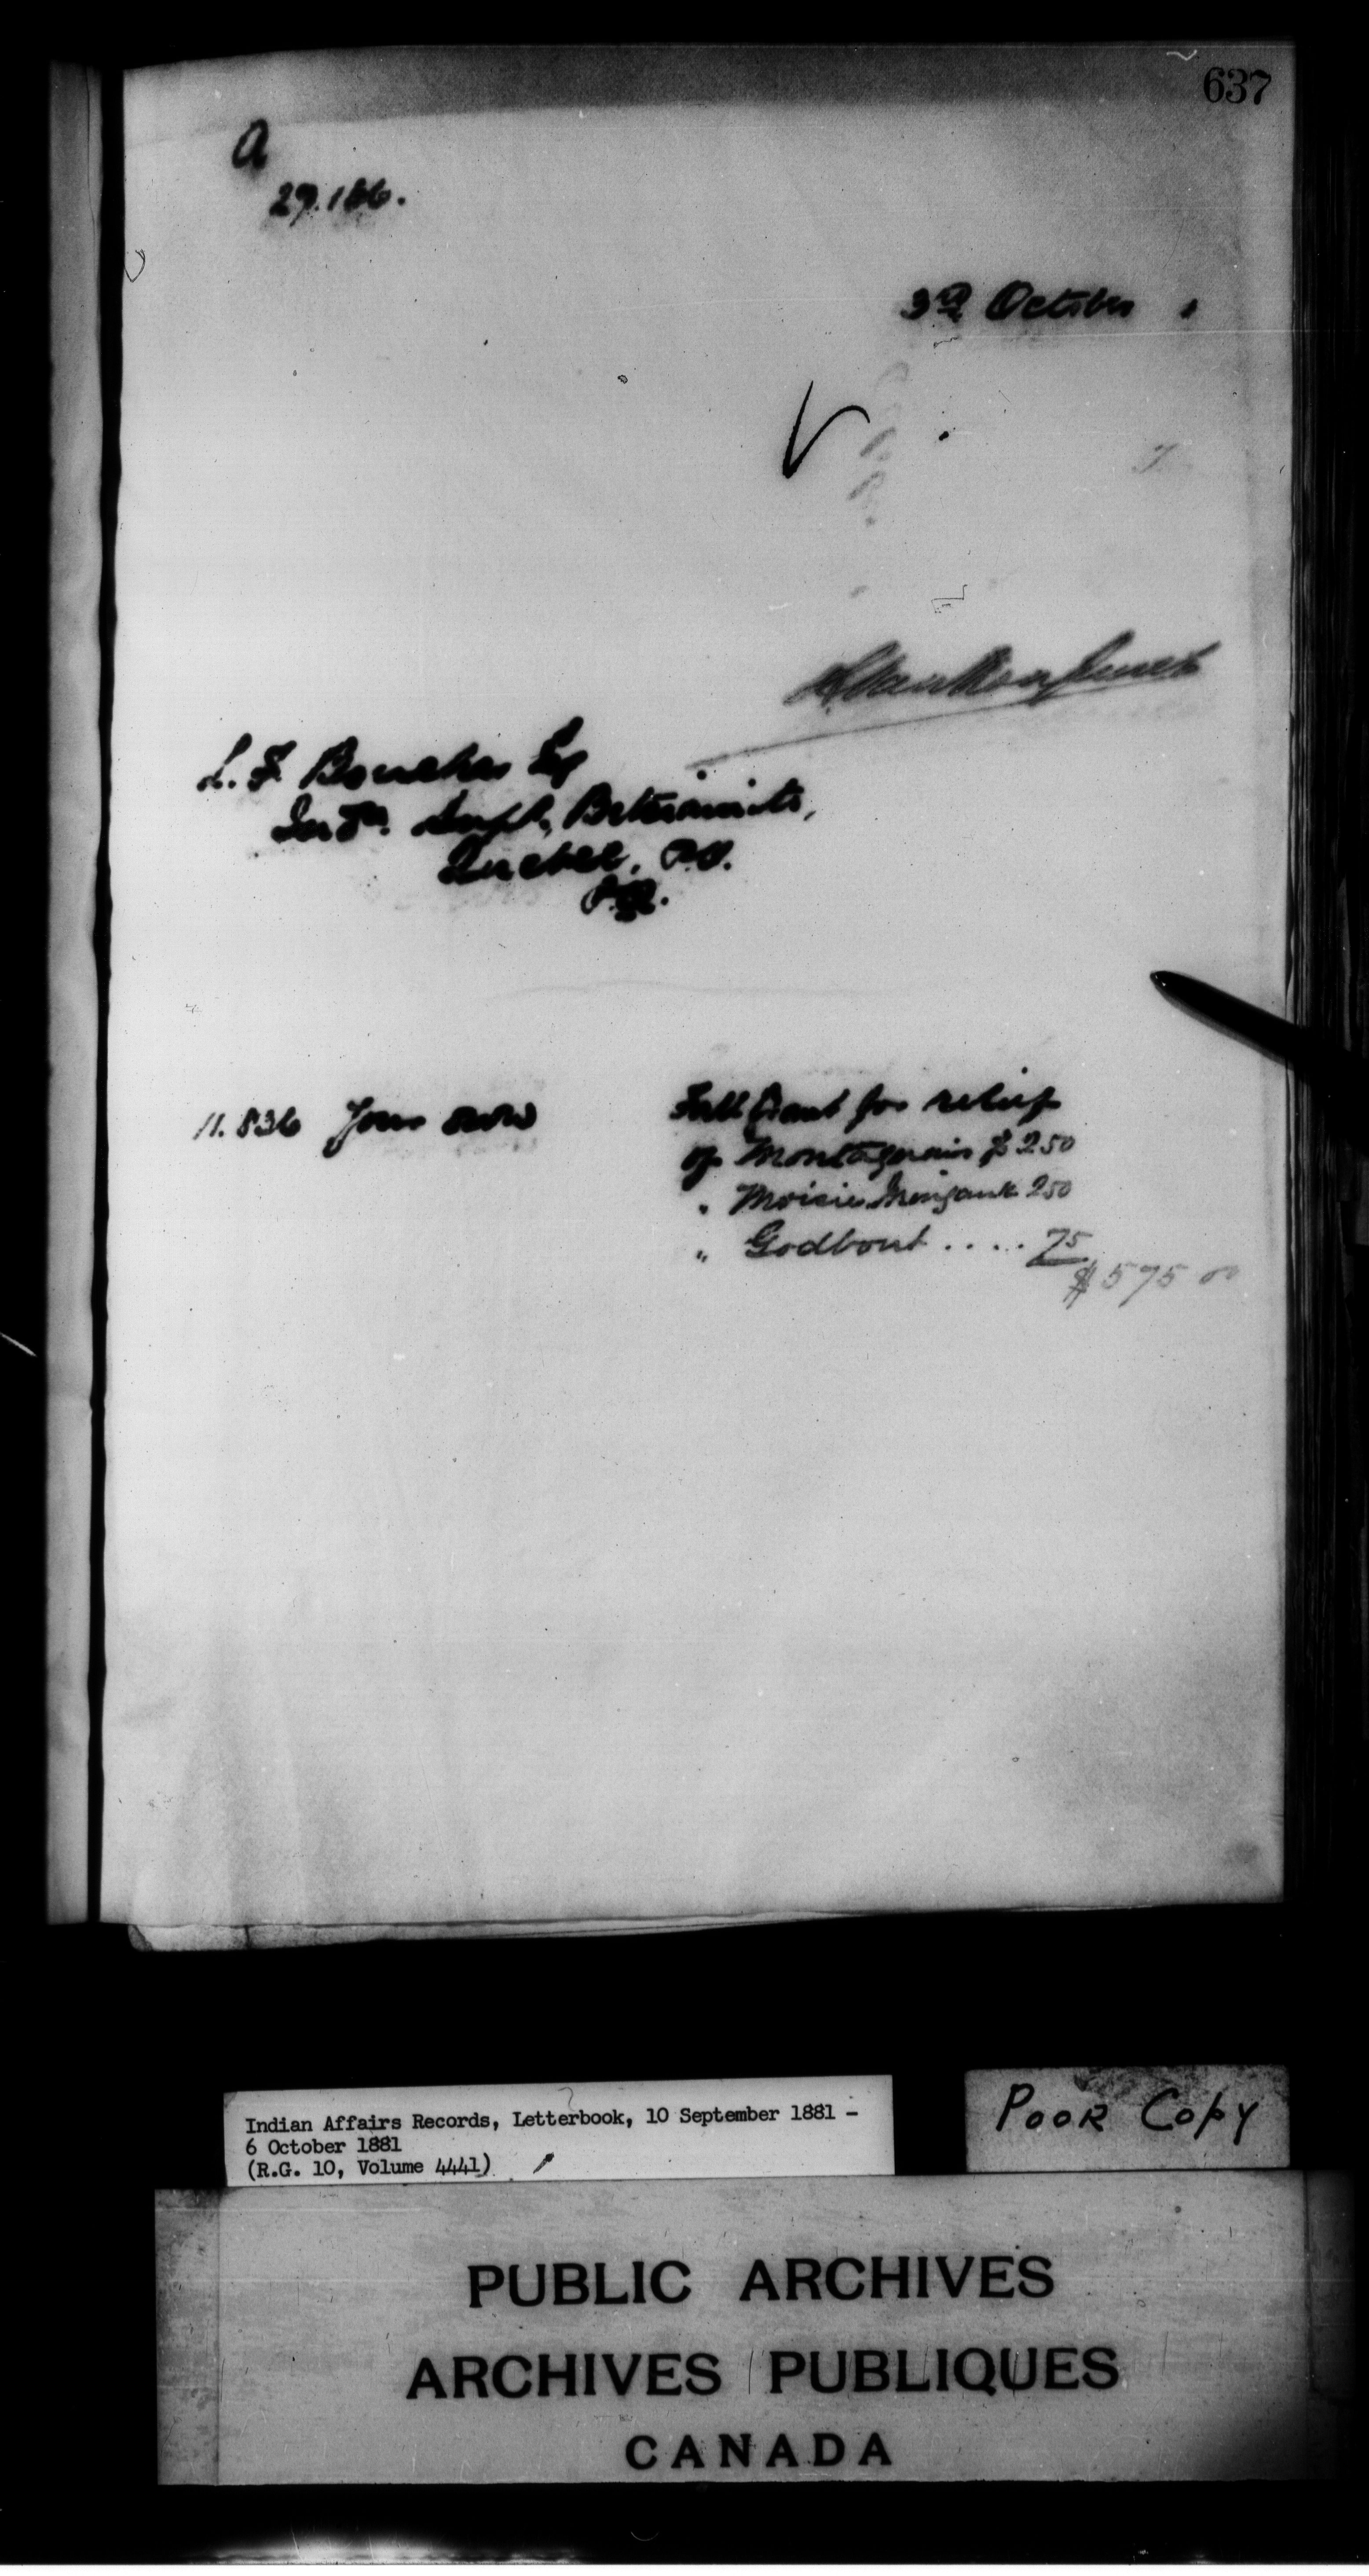 637
a
29.186.
3d October
L. F. Boucher Esq
Indn. Supt., Betsiamits,
Quebec, P.O.
P.Q.
11.836 Your own
Fall Grant for relief
of Montagnais $ 250
" Moisie 250
" Godbout .... 75
$ 575 00
Indian Affairs Records, Letterbook, 10 September 1881 -
6 October 1881
(R.G. 10, Volume 4441)
POOR COPY
PUBLIC ARCHIVES
ARCHIVES PUBLIQUES
CANADA